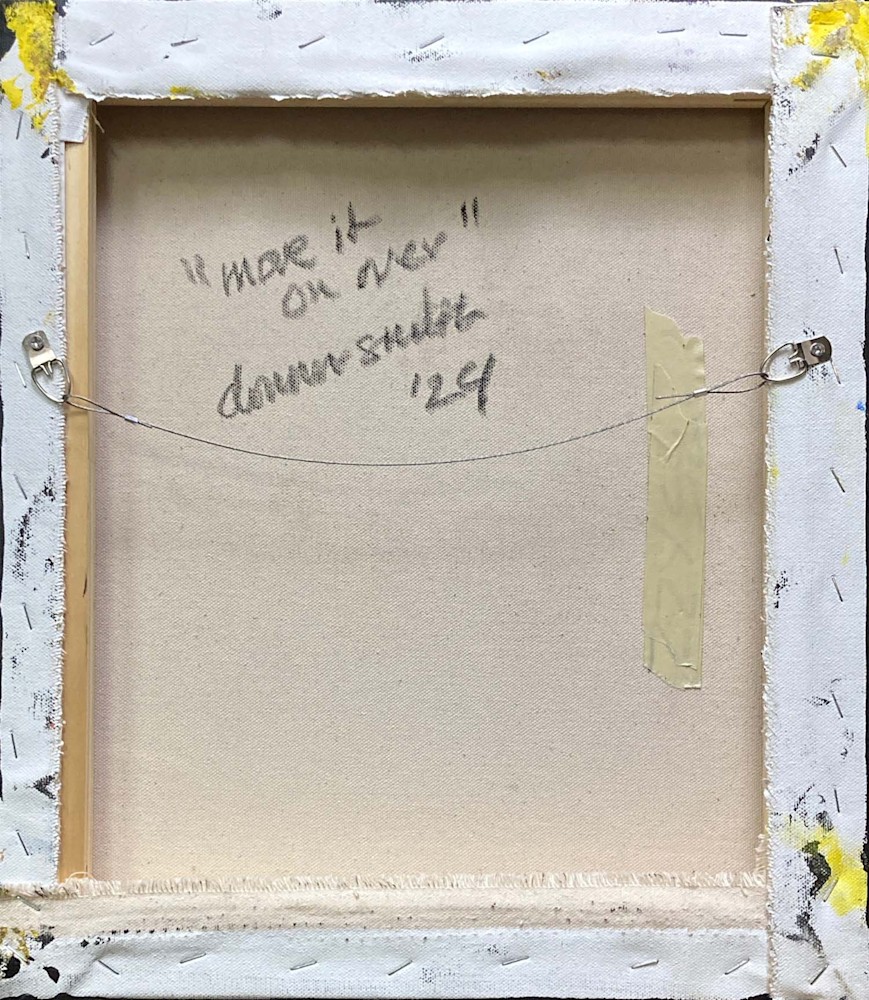 "move it
on over"
donna smith
'24